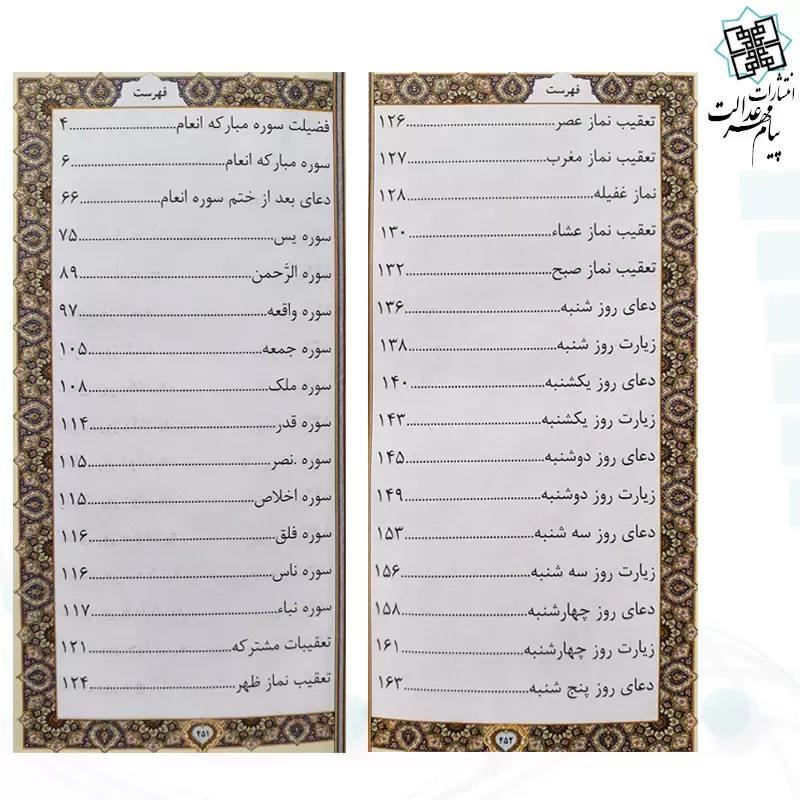 انتشارات
پیام مهر عدالت
فهرست
فضیلت سوره مبارکه انعام..........۴
سوره مبارکه انعام..........۶
دعای بعد از ختم سوره انعام..........۶۶
سوره یس..........۷۵
سوره الرَّحمن..........۸۹
سوره واقعه..........۹۷
سوره جمعه..........۱۰۵
سوره ملک..........۱۰۸
سوره قدر..........۱۱۴
سوره .نصر..........۱۱۵
سوره اخلاص..........۱۱۵
سوره فلق..........۱۱۶
سوره ناس..........۱۱۶
سوره نباء..........۱۱۷
تعقیبات مشترکه..........۱۲۱
تعقیب نماز ظهر..........۱۲۴
۴۵۱
فهرست
تعقیب نماز عصر..........۱۲۶
تعقیب نماز مغرب..........۱۲۷
نماز غفیله..........۱۲۸
تعقیب نماز عشاء..........۱۳۰
تعقیب نماز صبح..........۱۳۲
دعای روز شنبه..........۱۳۶
زیارت روز شنبه..........۱۳۸
دعای روز یکشنبه..........۱۴۰
زیارت روز یکشنبه..........۱۴۳
دعای روز دوشنبه..........۱۴۵
زیارت روز دوشنبه..........۱۴۹
دعای روز سه شنبه..........۱۵۳
زیارت روز سه شنبه..........۱۵۶
دعای روز چهارشنبه..........۱۵۸
زیارت روز چهارشنبه..........۱۶۱
دعای روز پنج شنبه..........۱۶۳
۴۵۲